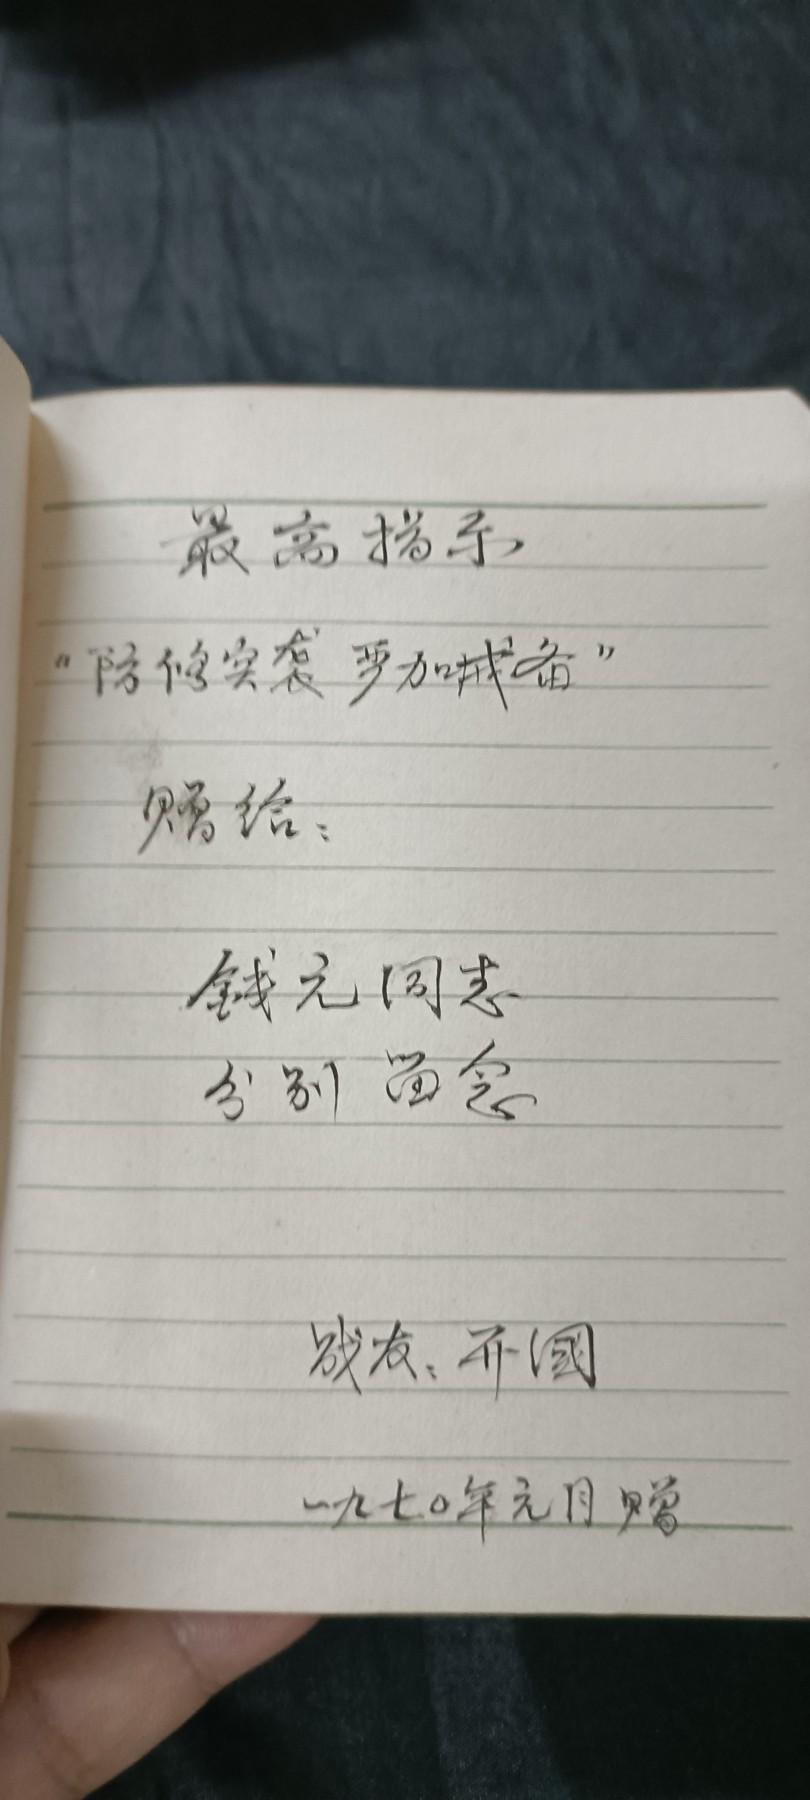 最高指示
“防修突袭 严加戒备”
赠给：
錢元同志
分别留念
战友：开國
一九七〇年元月赠